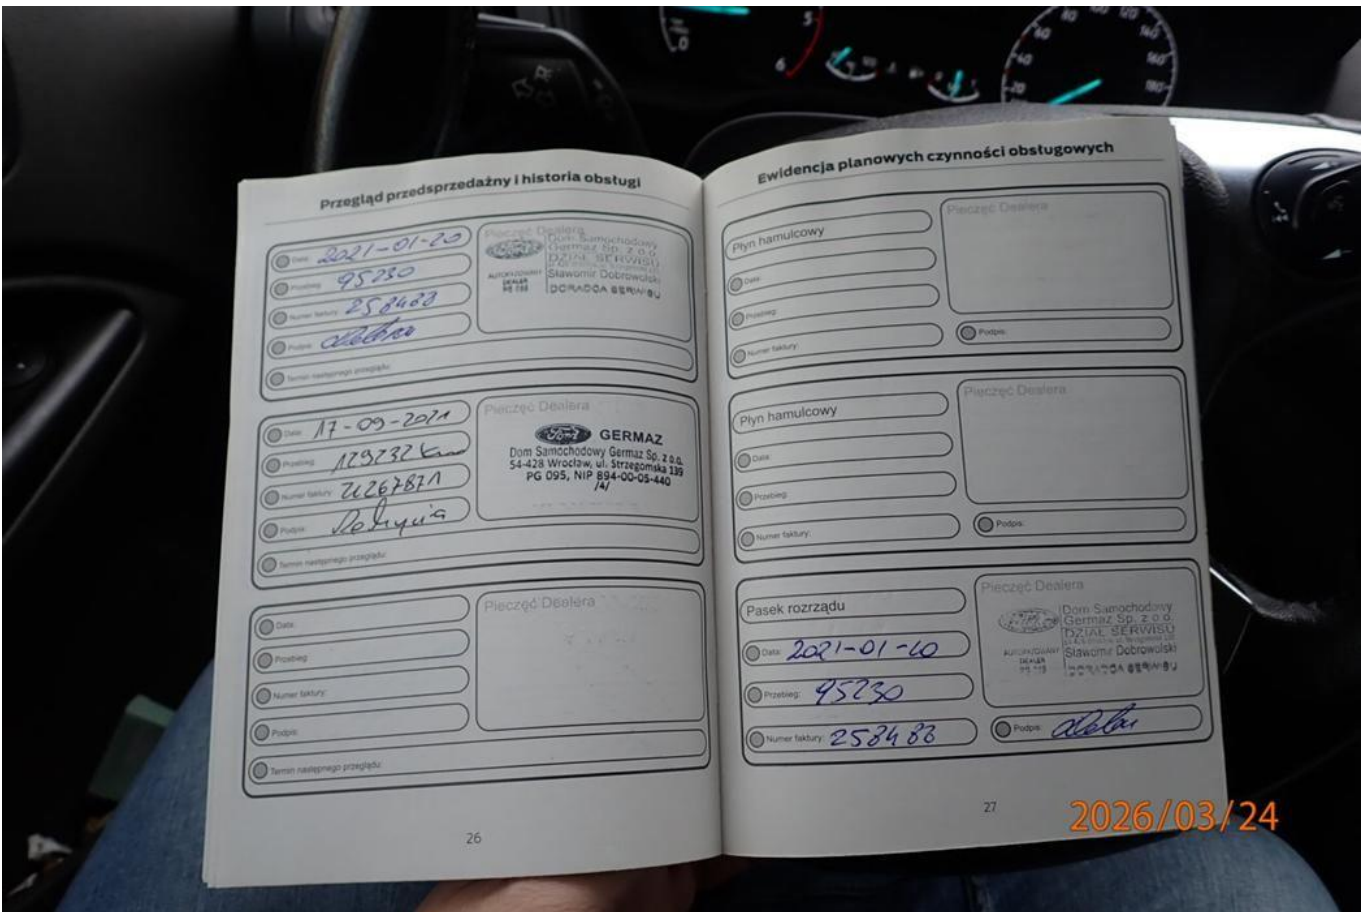 Przegląd przedsprzedażny i historia obsługi
Data: 2021-01-20
Przebieg: 95230
Numer faktury: 258488
Podpis:
Termin następnego przeglądu:
Pieczęć Dealera
Dom Samochodowy
Germaz Sp. z o.o.
DZIAŁ SERWISU
Sławomir Dobrowolski
DORADCA SERWISU
AUTORYZOWANY
DEALER
Data: 17-09-2021
Przebieg: 129232 km
Numer faktury: 21267871
Podpis:
Termin następnego przeglądu:
Pieczęć Dealera
Ford GERMAZ
Dom Samochodowy Germaz Sp. z o.o.
54-428 Wrocław, ul. Strzegomska 139
PG 095, NIP 894-00-05-440
/4/
Data:
Przebieg:
Numer faktury:
Podpis:
Termin następnego przeglądu:
Pieczęć Dealera
26
Ewidencja planowych czynności obsługowych
Płyn hamulcowy
Data:
Przebieg:
Numer faktury:
Pieczęć Dealera
Podpis:
Płyn hamulcowy
Data:
Przebieg:
Numer faktury:
Pieczęć Dealera
Podpis:
Pasek rozrządu
Data: 2021-01-20
Przebieg: 95230
Numer faktury: 258488
Pieczęć Dealera
Dom Samochodowy
Germaz Sp. z o.o.
DZIAŁ SERWISU
Sławomir Dobrowolski
DORADCA SERWISU
AUTORYZOWANY
DEALER
Podpis:
27
2026/03/24